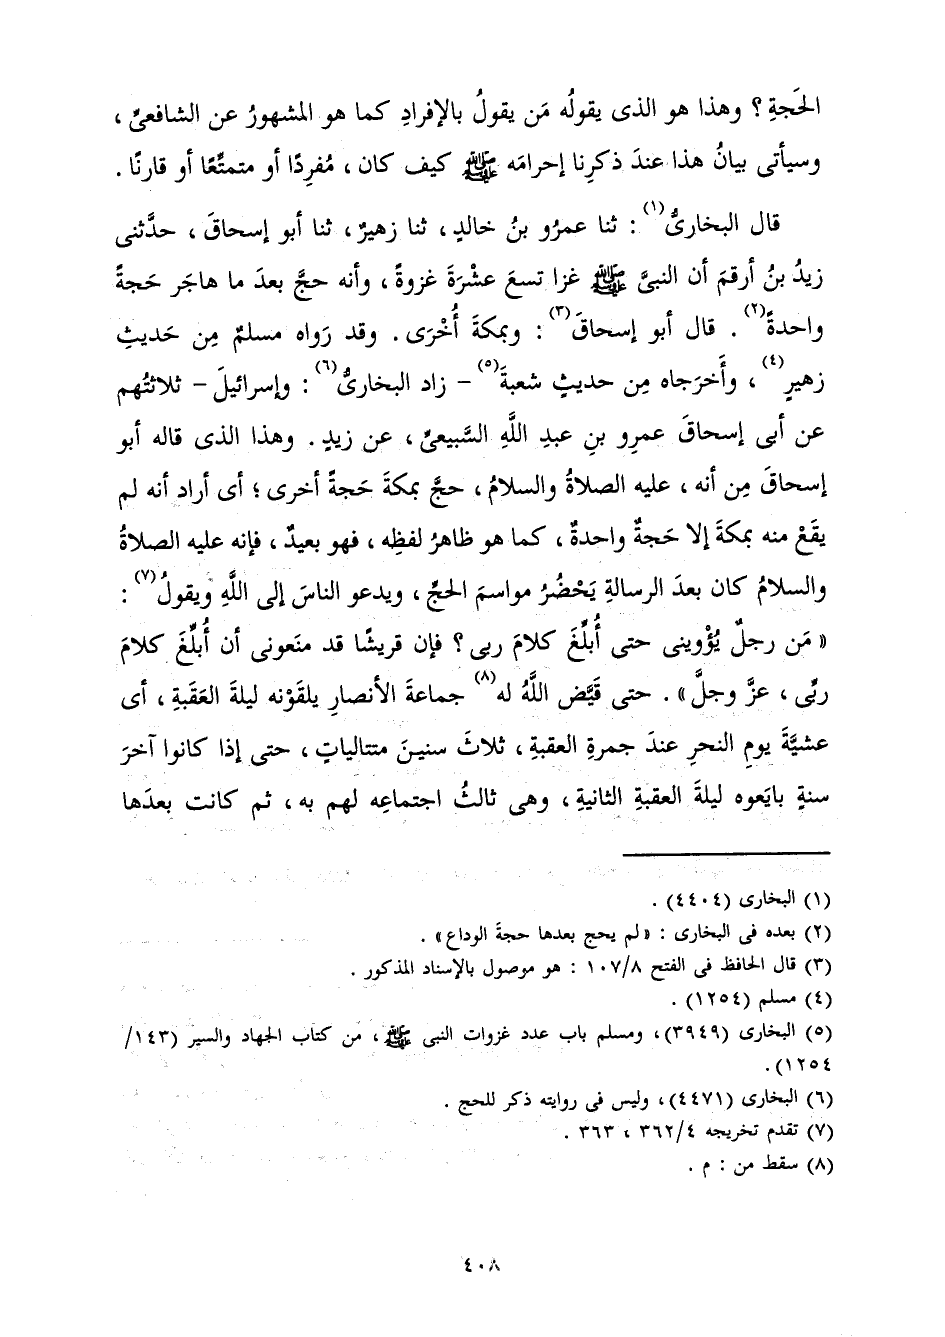 الحَجةِ ؟ وهذا هو الذى يقولُه مَن يقولُ بالإفرادِ كما هو المشهورُ عن الشافعىِّ ،
وسيأتى بيانُ هذا عندَ ذكرِنا إحرامَه ﷺ كيف كان ، مُفرِدًا أو متمتِّعًا أو قارنًا .
قال البخارىُّ(١) : ثنا عمرُو بنُ خالدٍ ، ثنا زهيرٌ ، ثنا أبو إسحاقَ ، حدَّثنى
زيدُ بنُ أرقمَ أن النبىَّ ﷺ غزا تسعَ عشْرَةَ غزوةً ، وأنه حجَّ بعدَ ما هاجَر حَجةً
واحدةً(٢) . قال أبو إسحاقَ(٣) : وبمكةَ أُخْرَى . وقد رَواه مسلمٌ مِن حَديثِ
زهيرٍ(٤) ، وأَخرَجاه مِن حديثِ شعبةَ(٥) – زاد البخارىُّ(٦) : وإسرائيلَ – ثلاثتُهم
عن أبى إسحاقَ عمرِو بنِ عبدِ اللَّهِ السَّبيعىِّ ، عن زيدٍ . وهذا الذى قاله أبو
إسحاقَ مِن أنه ، عليه الصلاةُ والسلامُ ، حجَّ بمكةَ حَجةً أخرى ؛ أى أراد أنه لم
يقَعْ منه بمكةَ إلا حَجةٌ واحدةٌ ، كما هو ظاهرُ لفظِه ، فهو بعيدٌ ، فإنه عليه الصلاةُ
والسلامُ كان بعدَ الرسالةِ يَحْضُرُ مواسمَ الحجِّ ، ويدعو الناسَ إلى اللَّهِ ويقولُ(٧) :
« مَن رجلٌ يُؤْوينى حتى أُبلِّغَ كلامَ ربى ؟ فإن قريشًا قد منَعونى أن أُبلِّغَ كلامَ
ربِّى ، عزَّ وجلَّ » . حتى قَيَّض اللَّهُ له(٨) جماعةَ الأنصارِ يلقَوْنه ليلةَ العَقَبةِ ، أى
عشيَّةَ يومِ النحرِ عندَ جمرةِ العقبةِ ، ثلاثَ سنينَ متتالياتٍ ، حتى إذا كانوا آخرَ
سنةٍ بايَعوه ليلةَ العقبةِ الثانيةِ ، وهى ثالثُ اجتماعِه لهم به ، ثم كانت بعدَها
(١) البخارى (٤٤٠٤) .
(٢) بعده فى البخارى : « لم يحج بعدها حجةَ الوداع » .
(٣) قال الحافظ فى الفتح ١٠٧/٨ : هو موصول بالإسناد المذكور .
(٤) مسلم (١٢٥٤) .
(٥) البخارى (٣٩٤٩)، ومسلم باب عدد غزوات النبى ﷺ ، من كتاب الجهاد والسير (١٤٣/
١٢٥٤).
(٦) البخارى (٤٤٧١)، وليس فى روايته ذكر للحج .
(٧) تقدم تخريجه ٣٦٢/٤ ، ٣٦٣ .
(٨) سقط من : م .
٤٠٨